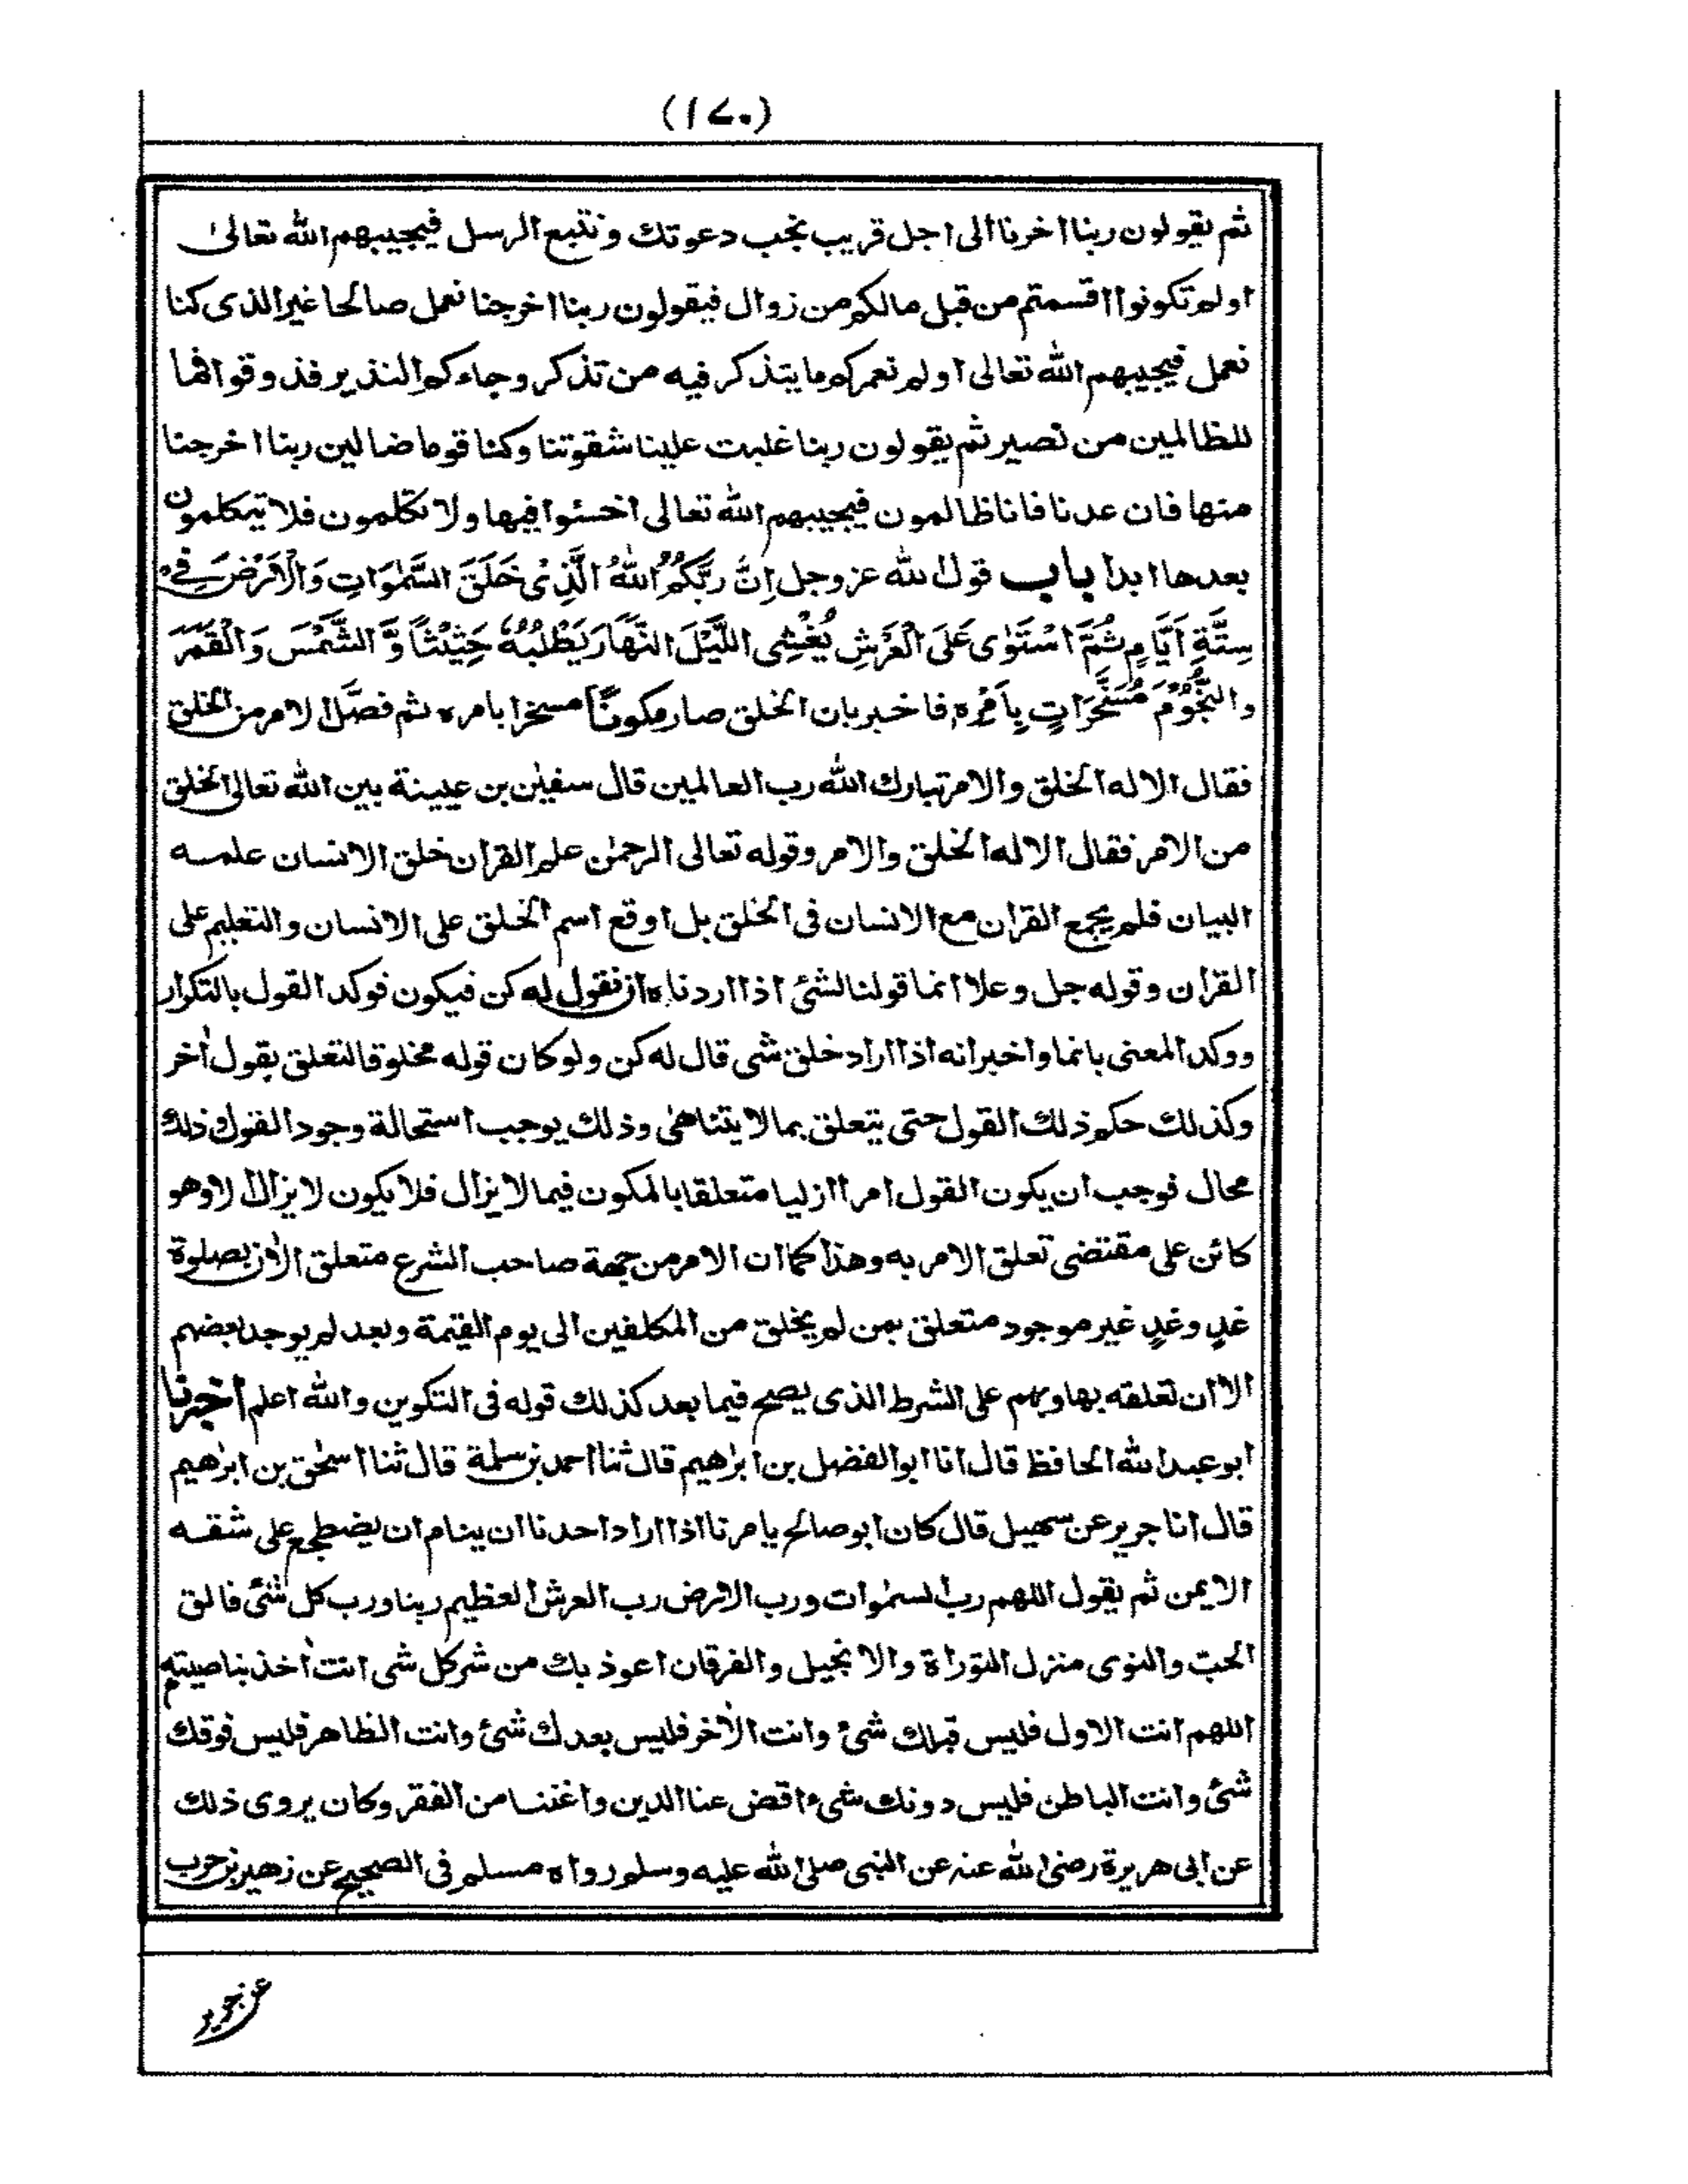 (١٧٠)
ثم يقولون ربنا اخرنا الى اجل قريب نجب دعوتك ونتبع الرسل فيجيبهم الله تعالىٰ
اولم تكونوا اقسمتم من قبل مالكم من زوال فيقولون ربنا اخرجنا نعمل صالحا غير الذى كنا
نعمل فيجيبهم الله تعالى اولم نعمركم ما يتذكر فيه من تذكر وجاءكم النذير فذوقوا فما
للظالمين من نصير ثم يقولون ربنا غلبت علينا شقوتنا وكنا قوما ضالين ربنا اخرجنا
منها فان عدنا فانا ظالمون فيجيبهم الله تعالى اخسئوا فيها ولا تكلمون فلا يتكلمون
بعدها ابدا باب قول الله عز وجل اِنَّ رَبَّكُمُ اللهُ الَّذِىْ خَلَقَ السَّمٰوَاتِ وَالْاَرْضَ فِىْ
سِتَّةِ اَيَّامٍ ثُمَّ اسْتَوٰى عَلَى الْعَرْشِ يُغْشِى اللَّيْلَ النَّهَارَ يَطْلُبُهٗ حَثِيْثًا وَّالشَّمْسَ وَالْقَمَرَ
والنُّجُوْمَ مُسَخَّرَاتٍ بِاَمْرِهٖ فاخبر بان الخلق صار مكونًا مسخرا بامره ثم فصَّل الامر من الخلق
فقال الا له الخلق والامر تبارك الله رب العالمين قال سفيٰن بن عيينة بين الله تعالى الخلق
من الامر فقال الا له الخلق والامر وقوله تعالى الرحمٰن علم القران خلق الانسان علمه
البيان فلم يجمع القران مع الانسان فى الخلق بل اوقع اسم الخلق على الانسان والتعليم على
القران وقوله جل وعلا انما قولنا لشئ اذا اردناه ان نقول له كن فيكون فوكد القول بالتكرار
ووكد المعنى بانما واخبر انه اذا اراد خلق شى قال له كن ولو كان قوله مخلوقا لتعلق بقول اٰخر
وكذلك حكم ذلك القول حتى يتعلق بما لا يتناهىٰ وذلك يوجب استحالة وجود القول وذلك
محال فوجب ان يكون القول امرا ازليا متعلقا بالمكون فيما لا يزال فلا يكون لا يزال الا وهو
كائن على مقتضى تعلق الامر به وهذا كما ان الامر من جهة صاحب الشرع متعلق الاٰن بصلوة
غدٍ وغدٍ غير موجود متعلق بمن لم يخلق من المكلفين الى يوم القيٰمة وبعد لم يوجد بعضهم
الا ان تعلقه بها وبهم على الشرط الذى يصح فيما بعد كذلك قوله فى التكوين والله اعلم اخبرنا
ابو عبد الله الحافظ قال انا ابو الفضل بن ابرٰهيم قال ثنا احمد بن سلمة قال ثنا اسحٰق بن ابرٰهيم
قال انا جرير عن سهيل قال كان ابو صالح يامرنا اذا اراد احدنا ان ينام ان يضطجع على شقه
الايمن ثم يقول اللهم رب السمٰوات ورب الارض رب العرش العظيم ربنا ورب كل شئ فالق
الحبّ والنوى منزل التوراة والانجيل والفرقان اعوذ بك من شر كل شى انت اٰخذ بناصيته
اللهم انت الاول فليس قبلك شئ وانت الاٰخر فليس بعدك شئ وانت الظاهر فليس فوقك
شئ وانت الباطن فليس دونك شىء اقض عنا الدين واغننا من الفقر وكان يروى ذلك
عن ابى هريرة رضى الله عنه عن النبى صلى الله عليه وسلم رواه مسلم فى الصحيح عن زهير بن حرب
عن جرير